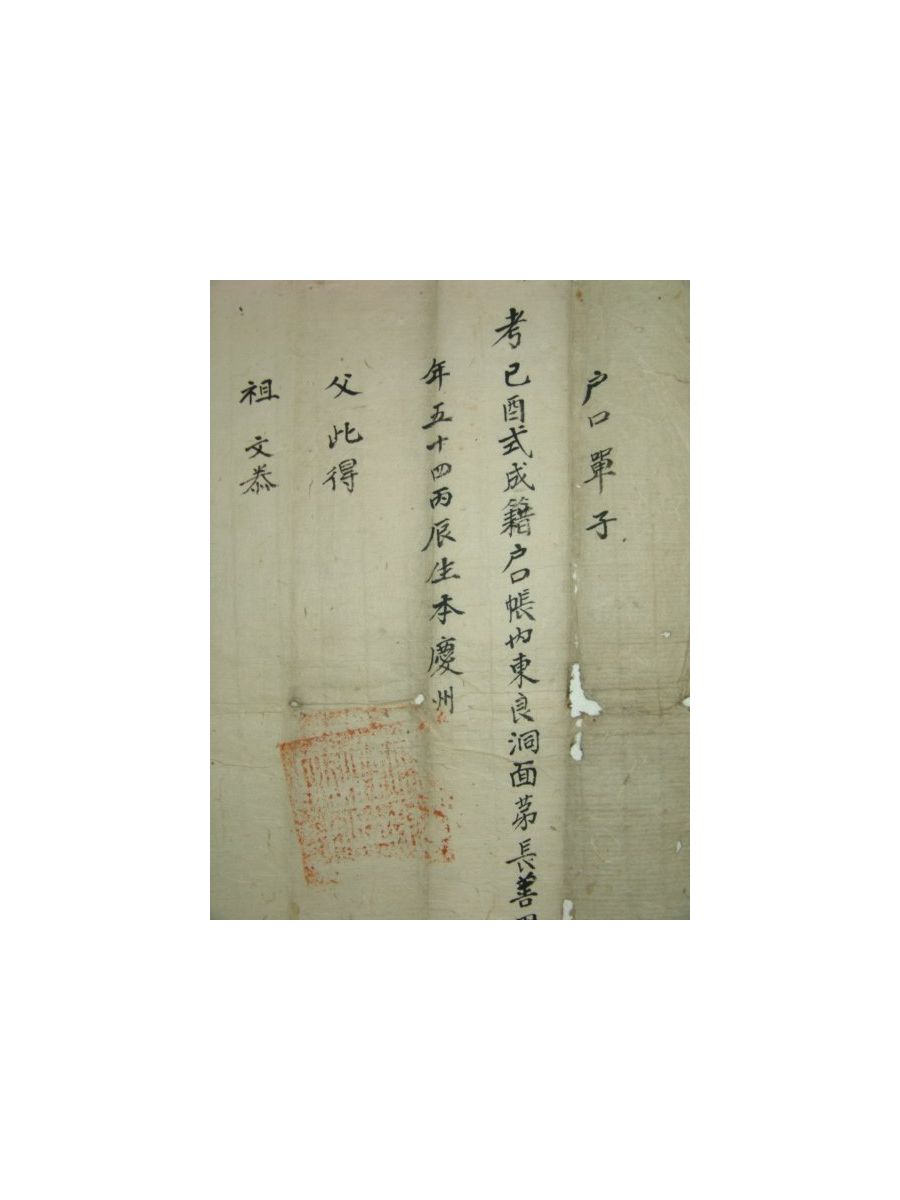 戶口單子
考己酉式成籍戶口帳內東良洞面苐長善
年五十四丙辰生本慶州
父此得
祖文泰